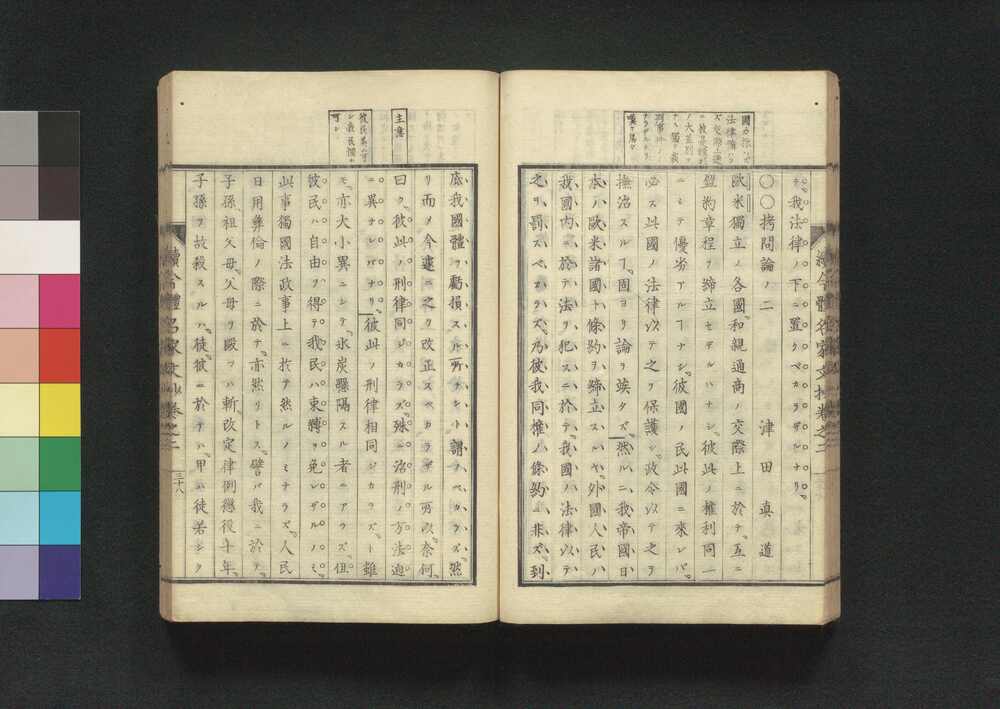 ヲ我法律ノ下ニ置クベカラザルナリ
〇〇拷問論ノ二 津田眞道
歐米獨立ノ各國和親通商ノ交際上ニ於テ互ニ
盟約章程ヲ締立セザルハナシ彼此ノ權利同一
ニシテ優劣アルヿナシ彼國ノ民此國ニ來レバ
必ス此國ノ法律以テ之ヲ保護シ政令以テ之ヲ
撫治スルヿ固ヨリ論ヲ竢タズ然ルニ我帝國日
本ノ歐米諸國ト條約ヲ締立スルヤ外國人民ハ
我國内ニ於テ法ヲ犯スニ於テ我國ノ法律以テ
之ヲ罰スベカラズ乃彼我同權ノ條約ニ非ズ到
底我國體ヲ虧損スル所ナシト謂フベカラズ然
リ而メ今遽ニ之ヲ改正スベカラザル所以奈何
曰ク彼此ノ刑律同ジカラズ殊ニ治刑ノ方法逈
ニ異ナレバナリ彼此ノ刑律相同ジカラズト雖
モ亦大小異ニシテ氷炭霄隔スル者ニアラズ但
彼民ハ自由ヲ得テ我民ハ束縛ヲ免レザルノミ
此事獨國法政事上ニ於テ然ルノミナラズ人民
日用彝倫ノ際ニ於テ亦然リトス譬バ我ニ於テ
子孫祖父母父母ヲ毆ツハ斬改定律例懲役十年
子孫ヲ故殺スルハ徒彼ニ於テハ甲ハ徒若シク
主意
續今體名家文抄卷之二
三十八